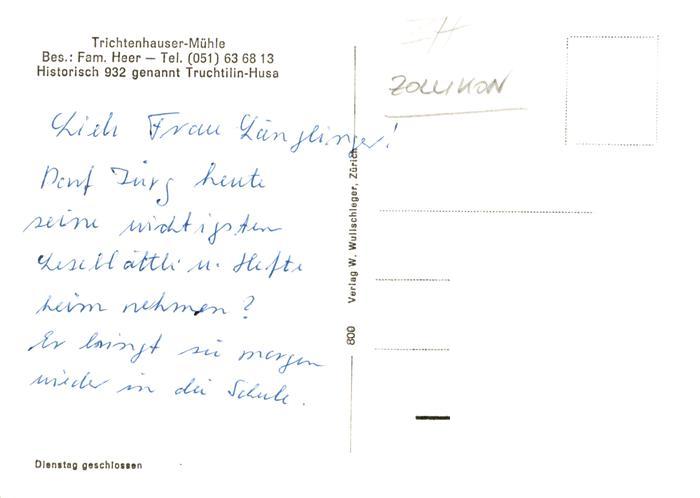 Trichtenhauser-Mühle
Bes.: Fam. Heer — Tel. (051) 63 68 13
Historisch 932 genannt Truchtilin-Husa
Lieb Frau Länglinger!
Darf Jürg heute
seine wichtigsten
Leseblättli u. Hefte
heim nehmen?
Er bringt sie morgen
wieder in die Schule.
Dienstag geschlossen
800 Verlag W. Wullschleger, Zürich
ZH
ZOLLIKON